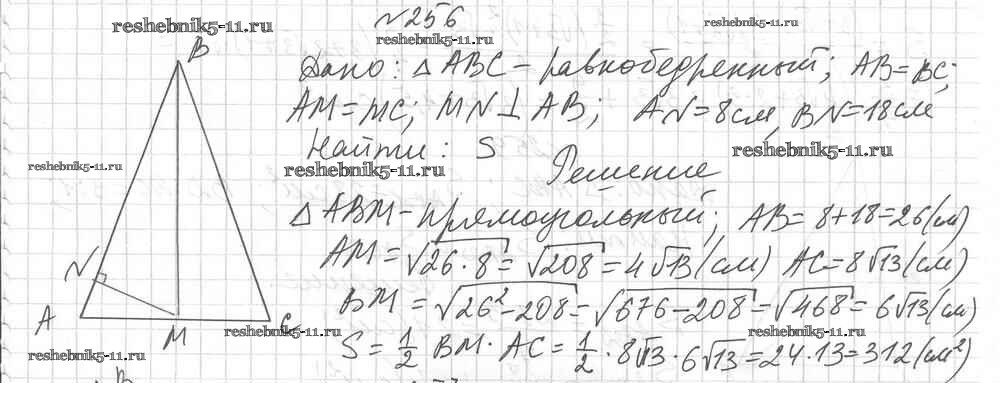 №256
reshebnik5-11.ru
reshebnik5-11.ru
reshebnik5-11.ru
B
Дано: △ABC – равнобедренный; AB=BC;
AM=MC; MN⊥AB; AN=8см, BN=18см
reshebnik5-11.ru
Найти: S
reshebnik5-11.ru
reshebnik5-11.ru
Решение
△ABM – прямоугольный; AB=8+18=26(см)
AM=√26·8=√208=4√13(см) AC=8√13(см)
N
BM=√26²-208=√676-208=√468=6√13(см)
A
M
C
reshebnik5-11.ru
reshebnik5-11.ru
S=1/2 BM·AC=1/2·8√13·6√13=24·13=312(см²)
reshebnik5-11.ru
B